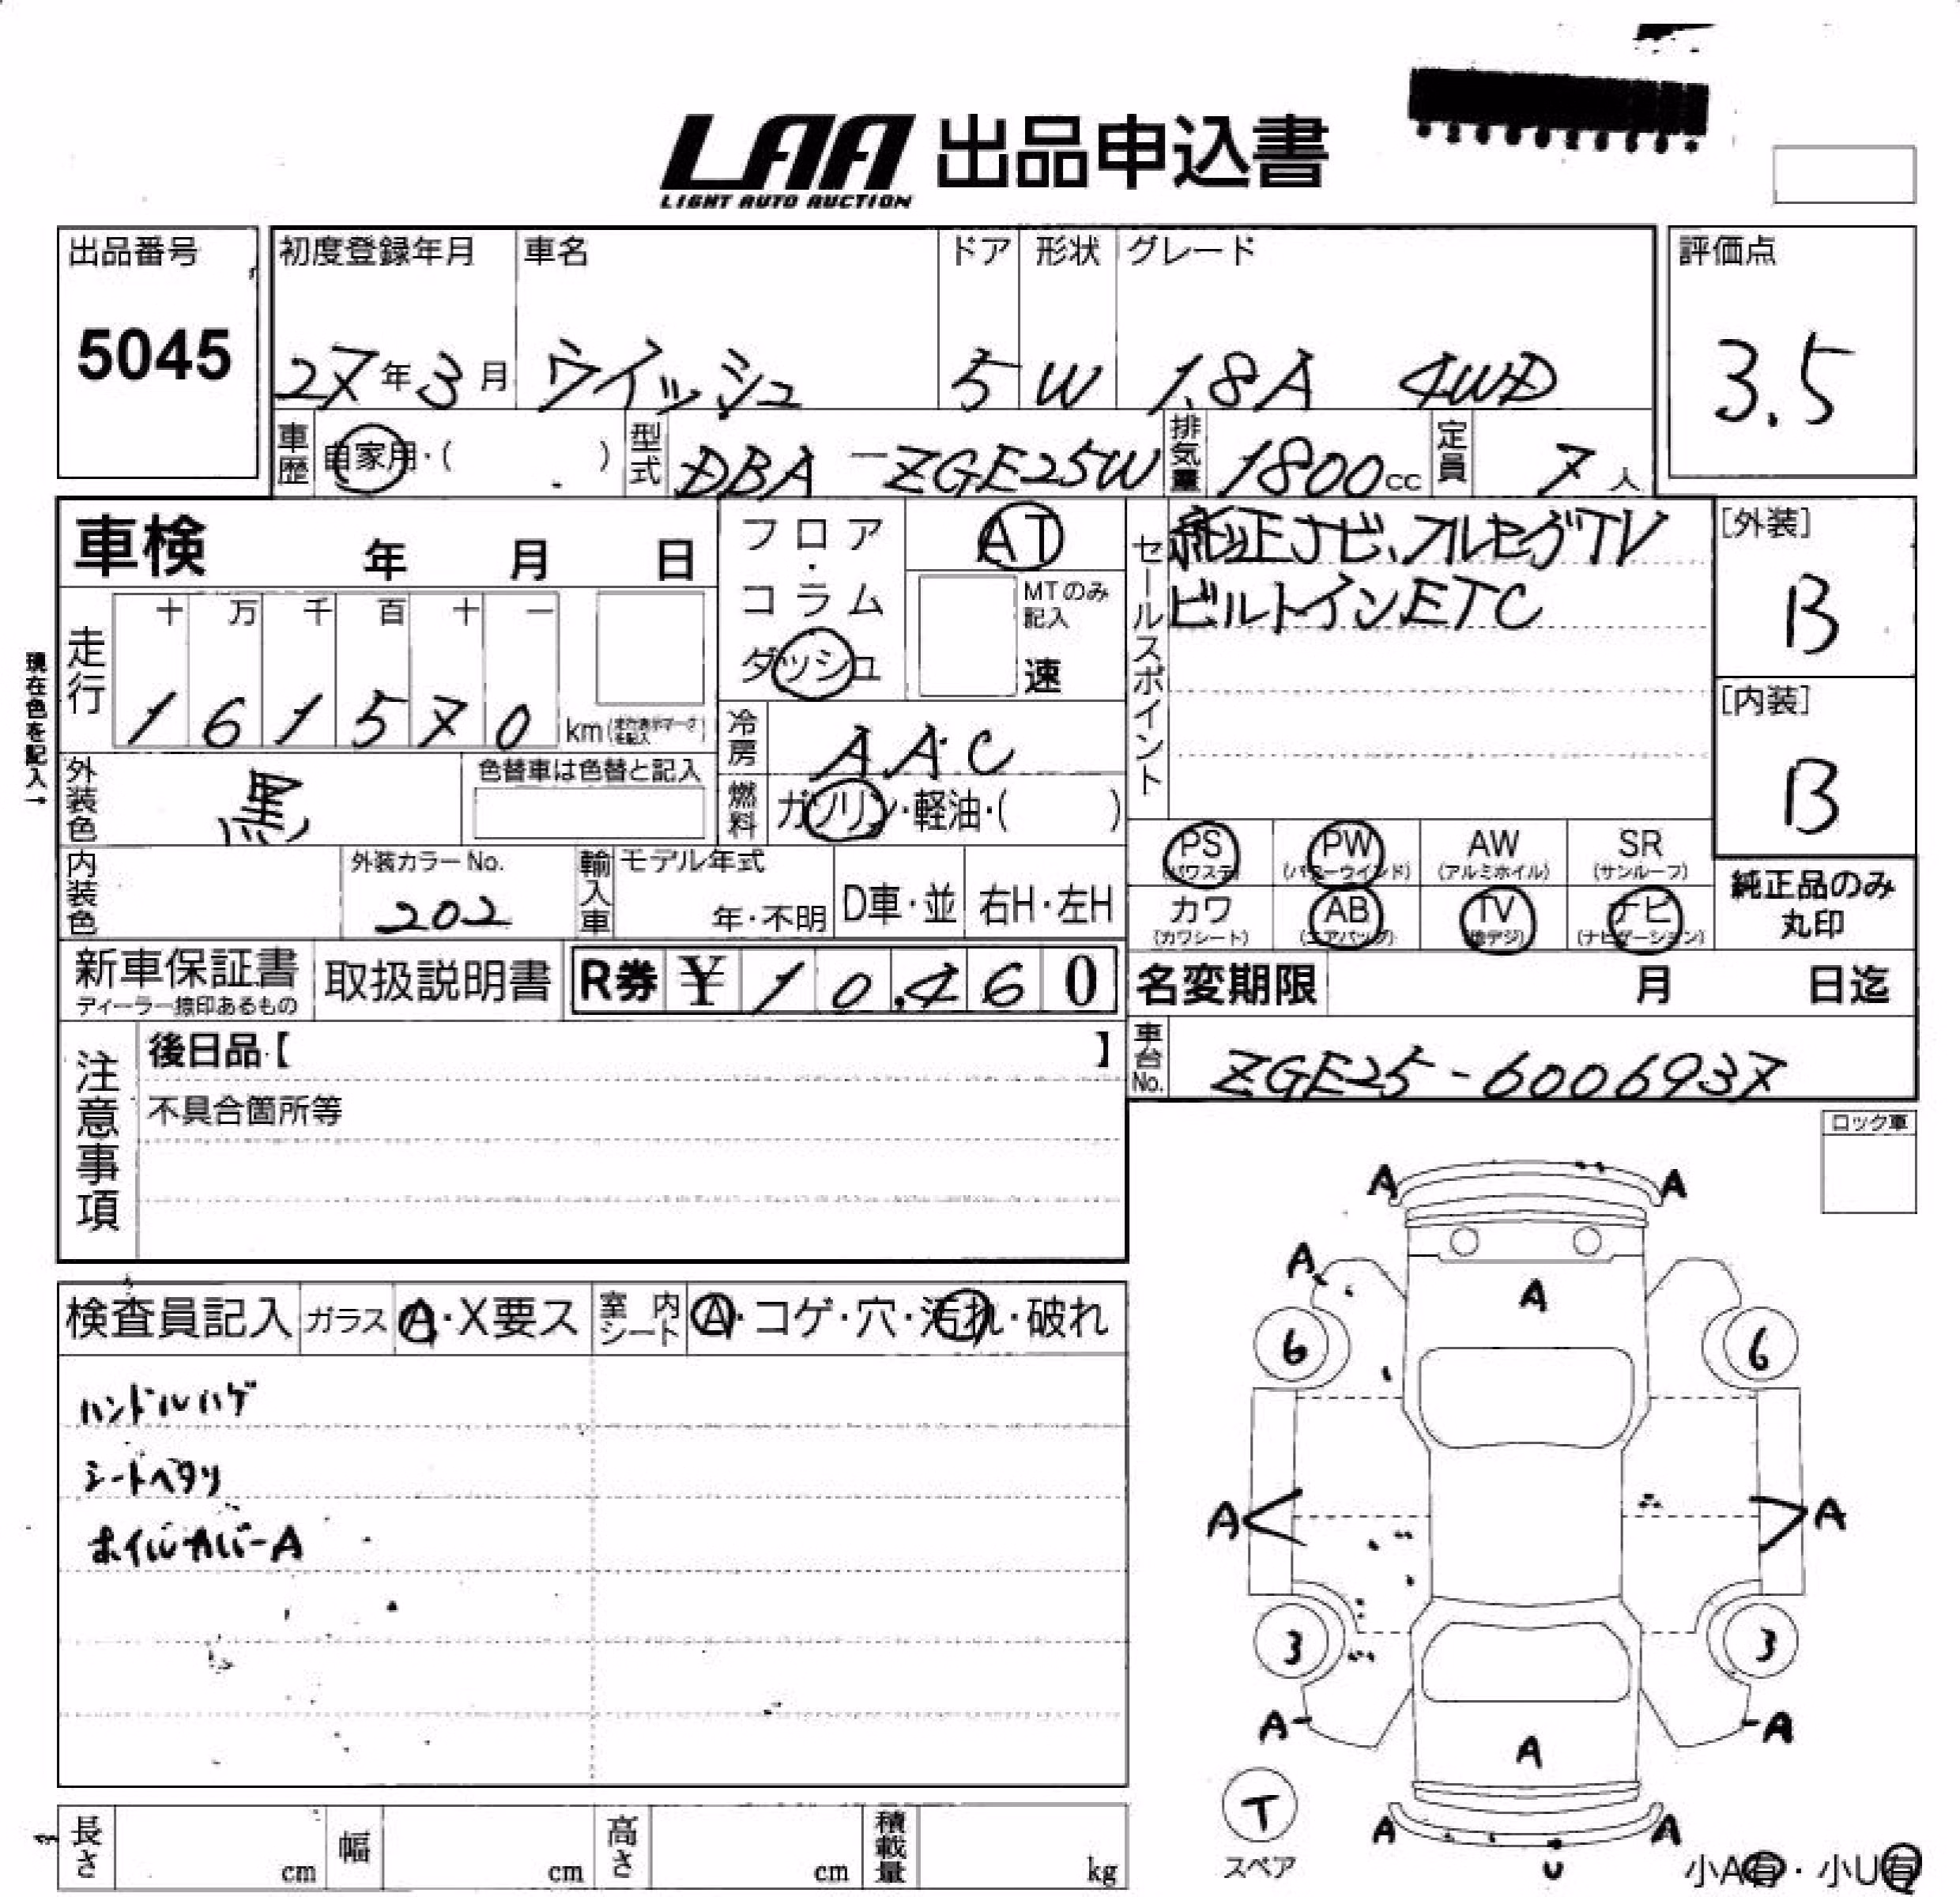 LAA 出品申込書
LIGHT AUTO AUCTION
出品番号
5045
初度登録年月
27年3月
車名
ウイッシュ
ドア
5
形状
W
グレード
1.8A 4WD
評価点
3.5
車歴
自家用・( )
型式
DBA-ZGE25W
排気量
1800cc
定員
7人
車検 年 月 日
フロア・コラム
ダッシュ
AT
MTのみ記入
速
セールスポイント
純正ナビ、フルセグTV
ビルトインETC
[外装]
B
[内装]
B
現在色を記入→
走行
十 万 千 百 十 一
1 6 1 5 7 0 km(走行表示マークを記入)
冷房
AAC
外装色
黒
色替車は色替と記入
燃料
ガソリン・軽油・( )
PS
(パワステ)
PW
(パワーウインド)
AW
(アルミホイル)
SR
(サンルーフ)
カワ
(カワシート)
AB
(エアバッグ)
TV
(地デジ)
ナビ
(ナビゲーション)
純正品のみ
丸印
内装色
外装カラーNo.
202
輸入車
モデル年式
年・不明
D車・並
右H・左H
新車保証書
ディーラー捺印あるもの
取扱説明書
R券 ¥ 10,460
名変期限 月 日迄
車台No.
ZGE25-6006937
注意事項
後日品【 】
不具合箇所等
ロック車
検査員記入
ガラス
A・X要ス
室内シート
A・コゲ・穴・汚れ・破れ
ハンドルハゲ
シートヘタリ
ホイルカバーA
A A
A
A
6 6
A A
3 3
A A
A
T
スペア
A A
U
小A有・小U有
長さ cm
幅 cm
高さ cm
積載量 kg